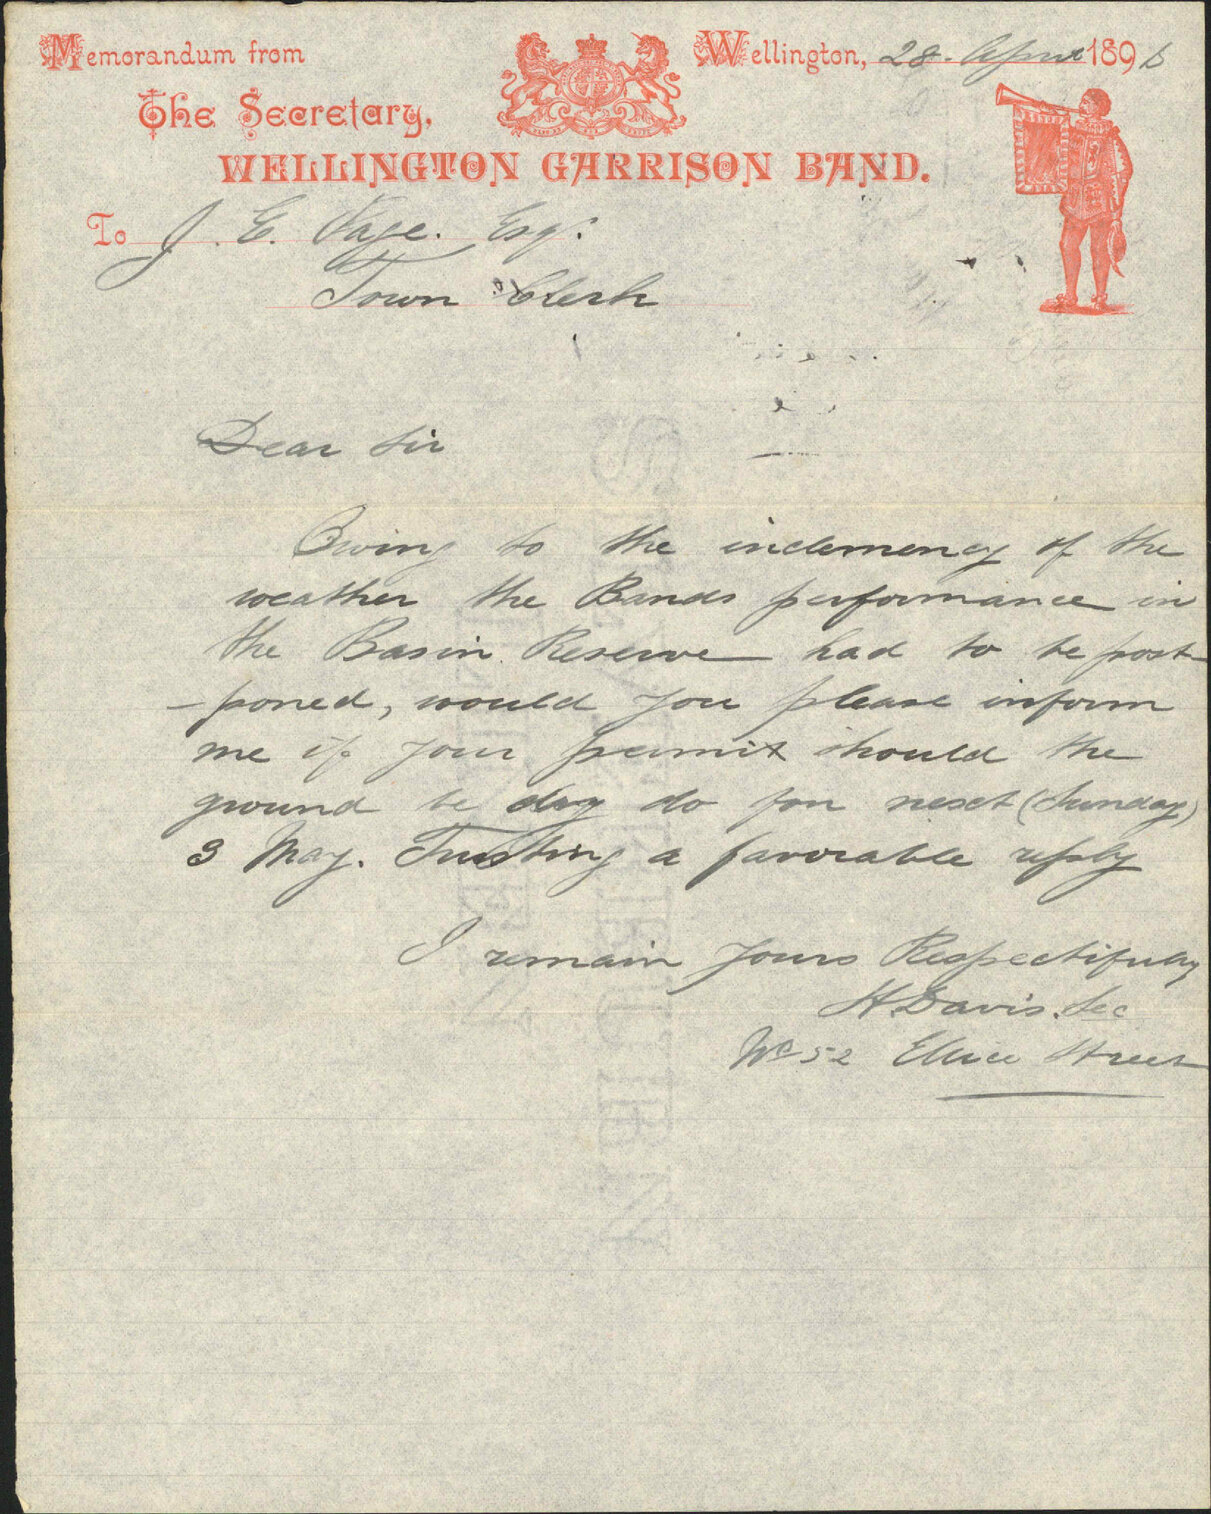 Memorandum from
The Secretary,
WELLINGTON GARRISON BAND.
Wellington, 28. April 1896
To J. E. Page. Esq.
Town Clerk
Dear Sir
Owing to the inclemency of the
weather the Bands performance in
the Basin Reserve had to be post-
-poned, would you please inform
me if your permit should the
ground be dry do for next (Sunday)
3 May. Trusting a favorable reply
I remain Yours Respectifully
H Davis. Sec
No 52 Ellice Street